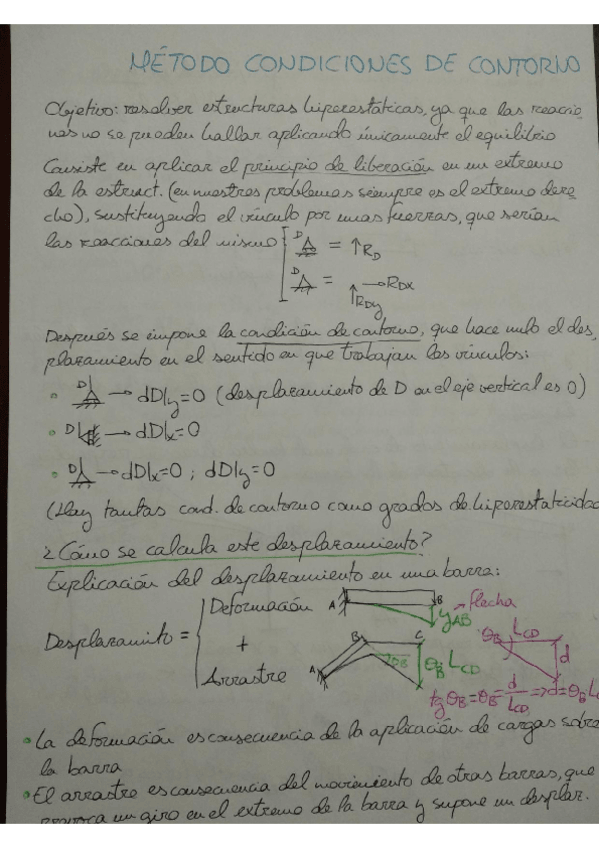 MÉTODO CONDICIONES DE CONTORNO
Objetivo: resolver estructuras hiperestáticas, ya que las reaccio
nes no se pueden hallar aplicando únicamente el equilibrio
Consiste en aplicar el principio de liberación en un extremo
de la estruct. (en nuestros problemas siempre es el extremo dere
cho), sustituyendo el vínculo por unas fuerzas, que serían
las reacciones del mismo D = ↑RD
D = →RDX
↑RDy
Después se impone la condición de contorno, que hace nulo el des
plazamiento en el sentido en que trabajan los vínculos:
• D → dD|y=0 (desplazamiento de D en el eje vertical es 0)
• D → dD|x=0
• D → dD|x=0 ; dD|y=0
(Hay tantas cond. de contorno como grados de hiperestaticidad
¿Cómo se calcula este desplazamiento?
Explicación del desplazamiento en una barra:
Deformación A B → flecha
yAB
Desplazamito = +
Arrastre A B C θB LCD
θB LCD d
tg θB = θB = d/LCD => d = θB L
• La deformación es consecuencia de la aplicación de cargas sobre
la barra
• El arrastre es consecuencia del movimiento de otras barras, que
provoca un giro en el extremo de la barra y supone un desplaz.